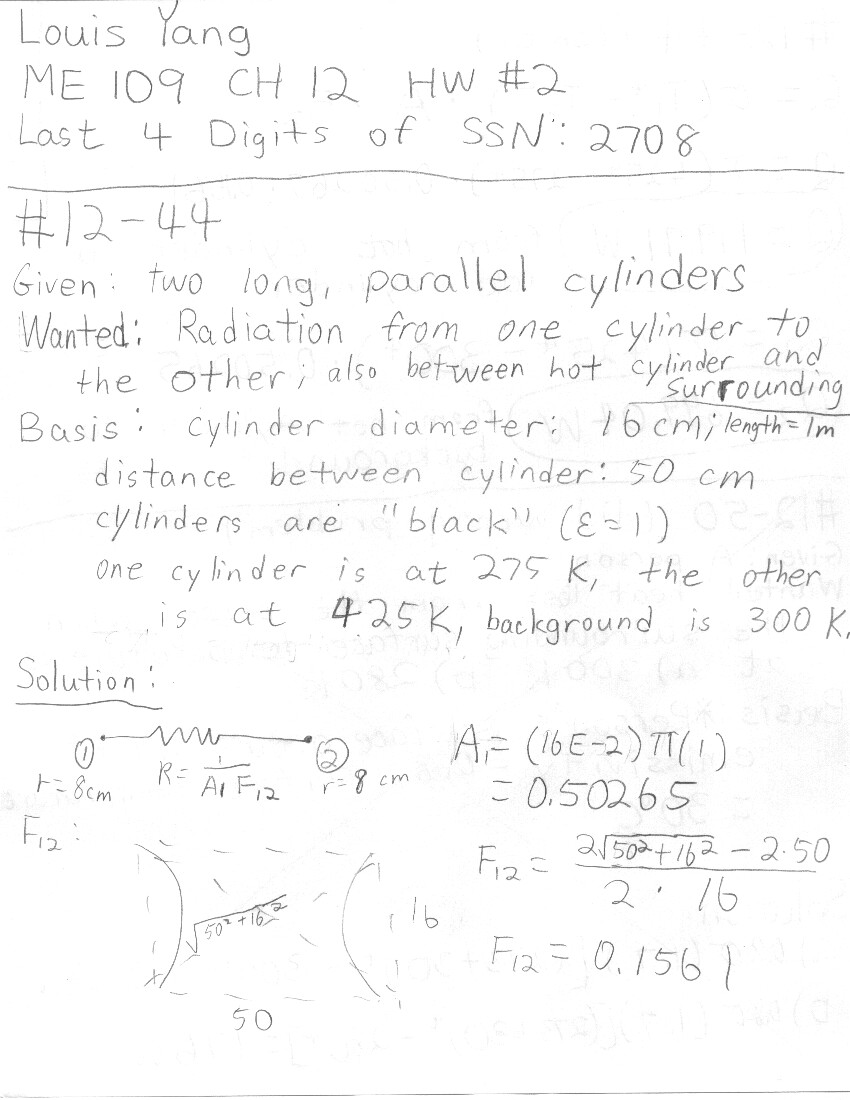 Louis Yang
ME 109 CH 12 HW #2
Last 4 Digits of SSN: 2708
#12-44
Given: two long, parallel cylinders
Wanted: Radiation from one cylinder to
the other; also between hot cylinder and
surrounding
Basis: cylinder diameter: 16 cm; length = 1m
distance between cylinder: 50 cm
cylinders are "black" (ε=1)
one cylinder is at 275 K, the other
is at 425K, background is 300 K.
Solution:
① ②
r=8cm R= 1/(A₁ F₁₂) r=8 cm
A₁= (16E-2)π(1)
= 0.50265
F₁₂:
F₁₂= (2√(50²+16²) - 2·50)/(2 · 16)
√(50²+16²)
16
F₁₂ = 0.1561
50